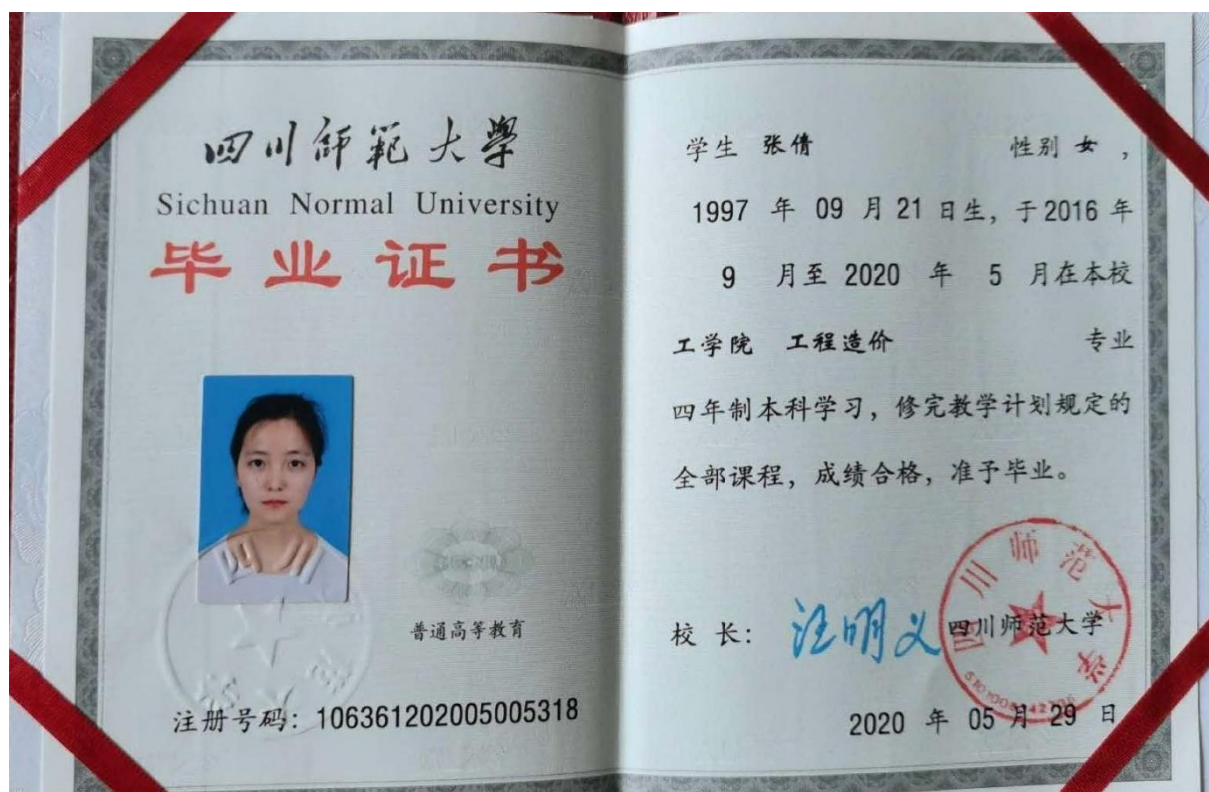 四川师范大学
Sichuan Normal University
毕业证书
普通高等教育
注册号码：106361202005005318
学生 张倩 性别 女，
1997 年 09 月 21 日生，于 2016 年
9 月至 2020 年 5 月在本校
工学院 工程造价 专业
四年制本科学习，修完教学计划规定的
全部课程，成绩合格，准予毕业。
校 长： 汪明义 四川师范大学
四川师范大学
2020 年 05 月 29 日